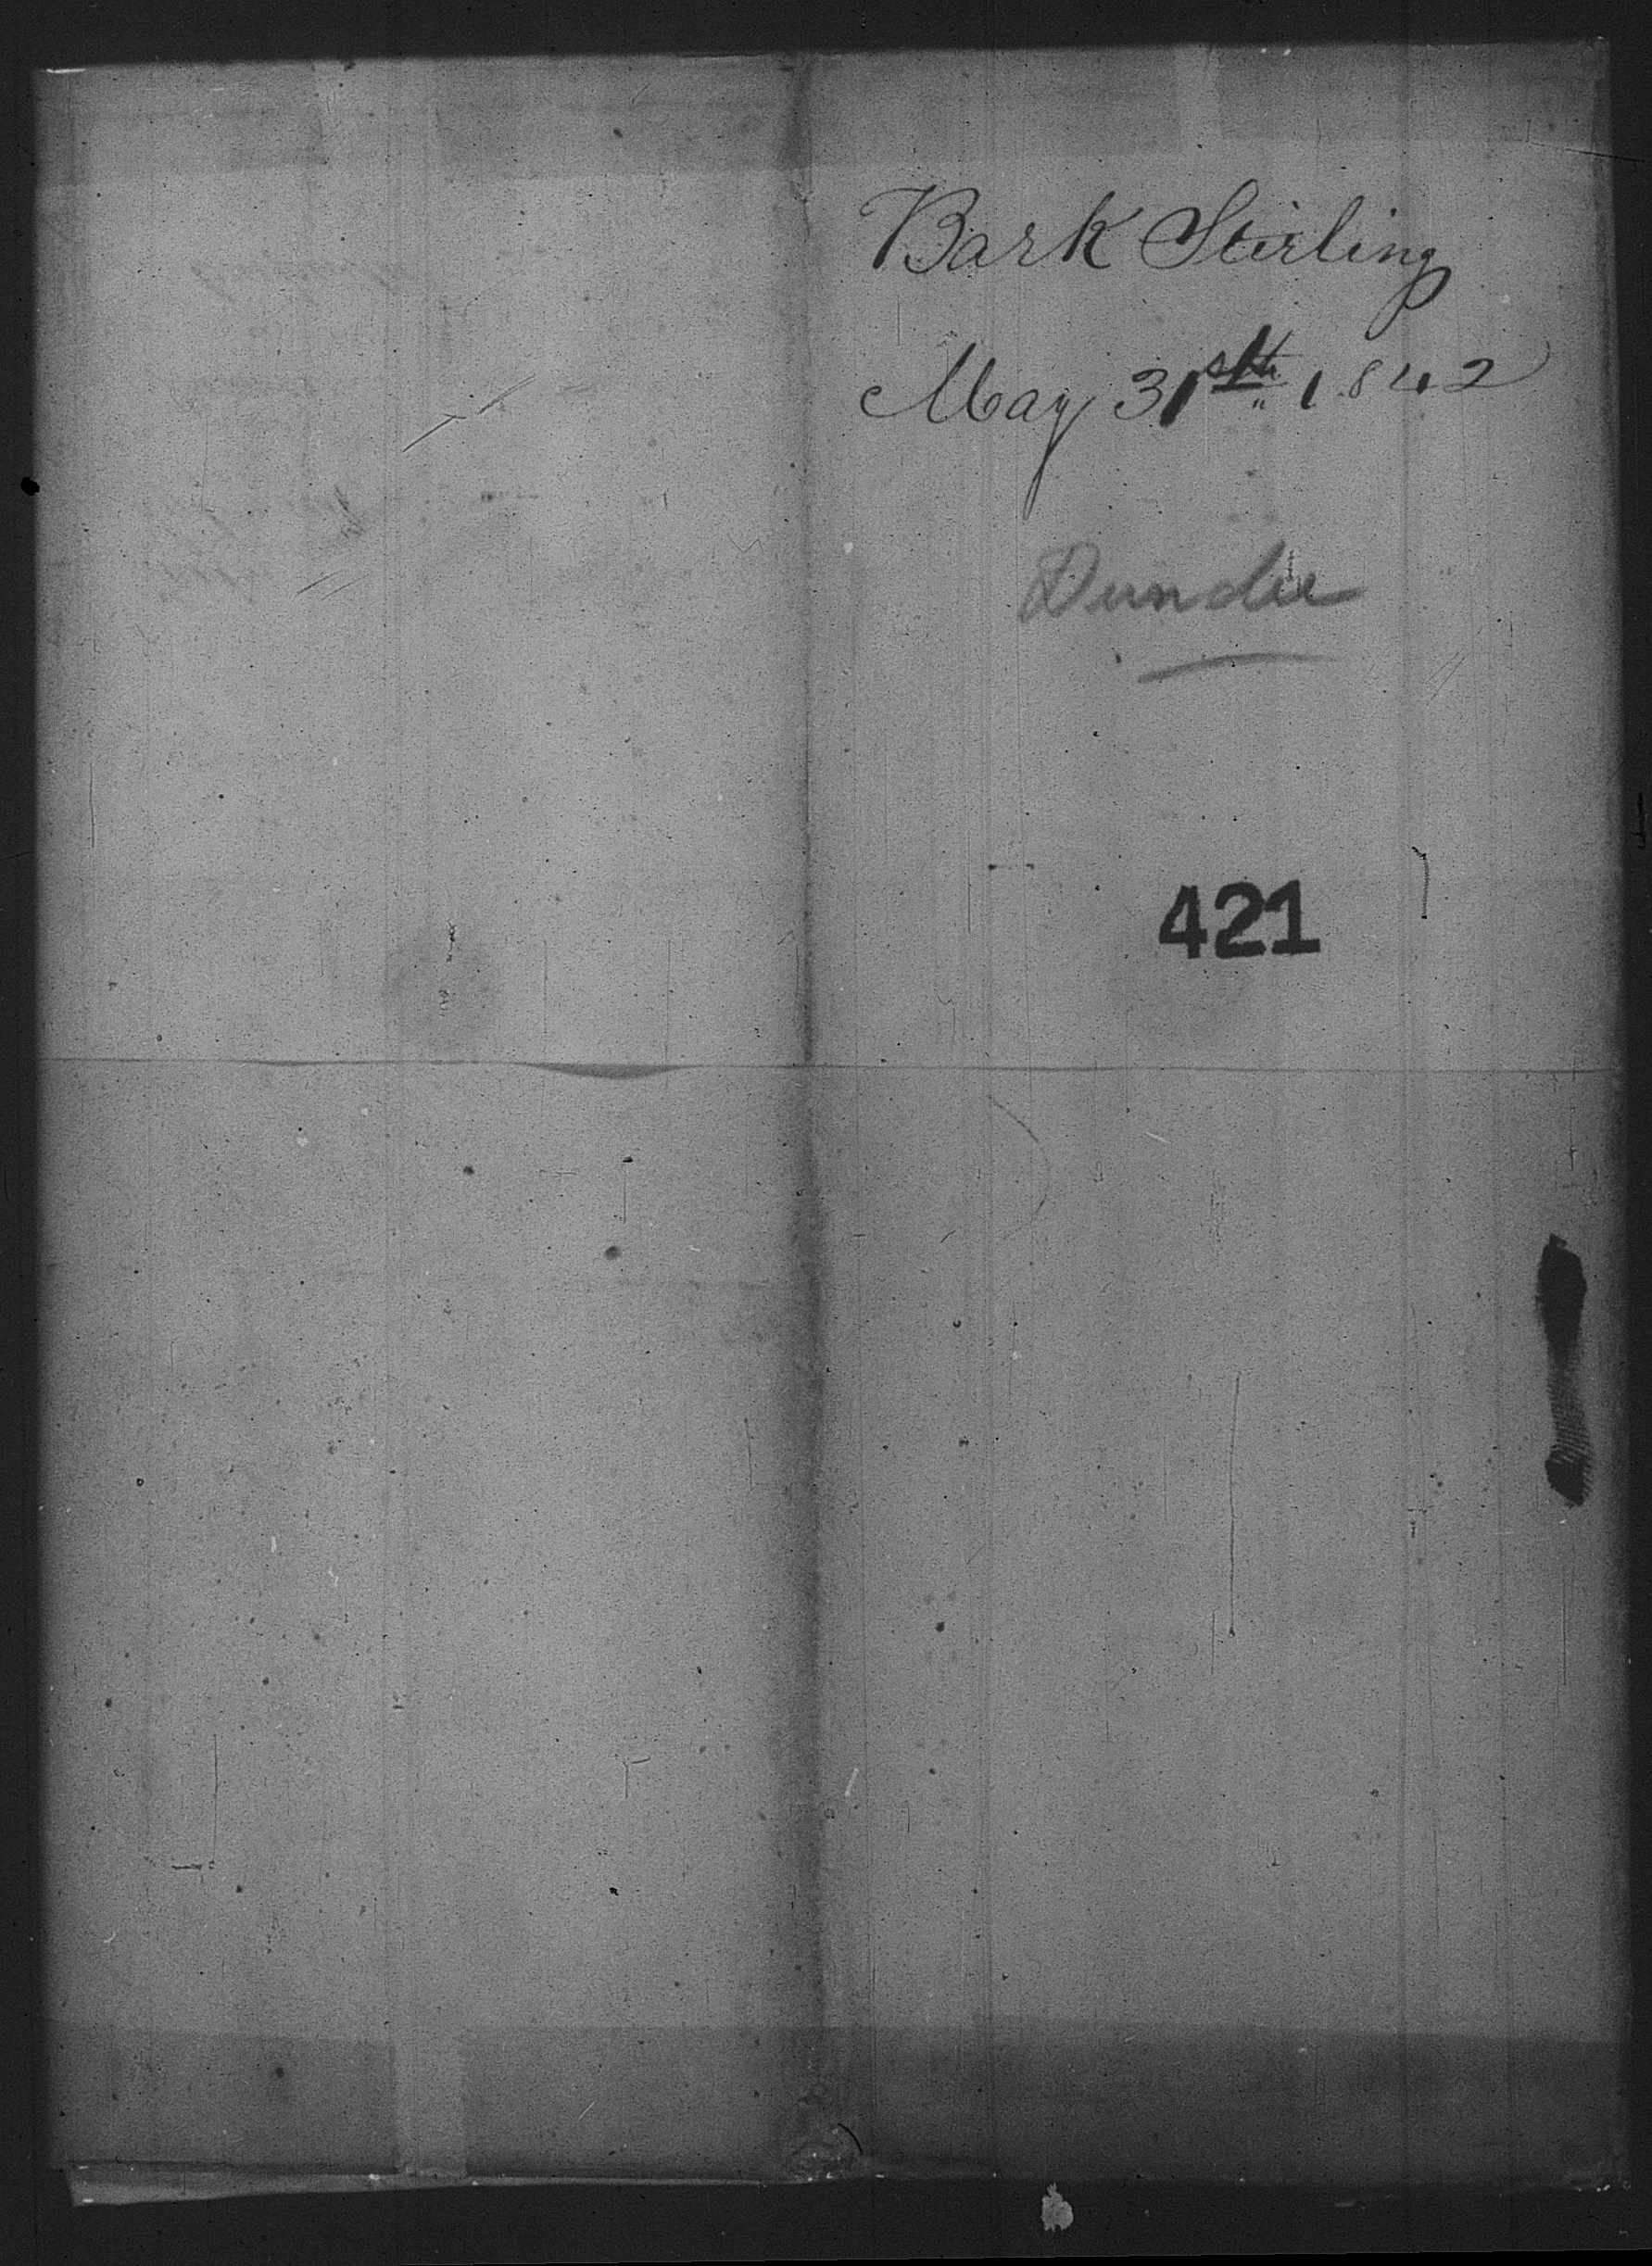 Bark Stirling
May 31st 1842
Dundee
421